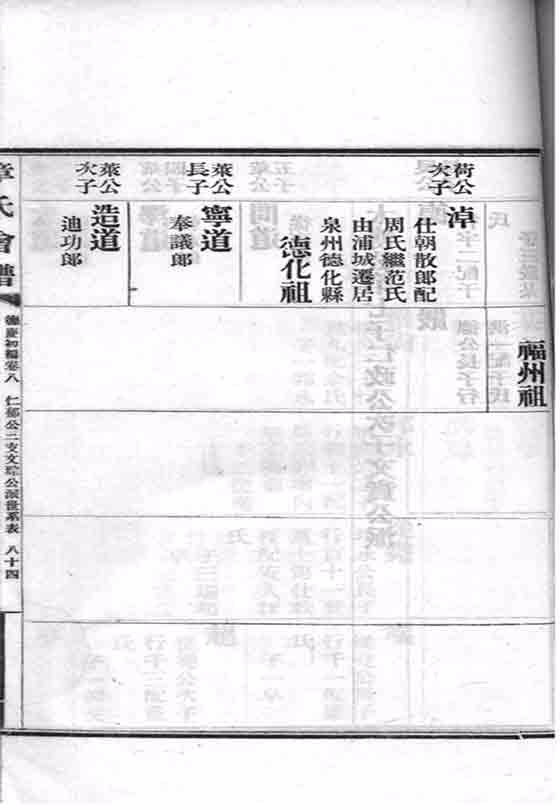 福州祖
荷公
次子
淖
仕朝散郎配
周氏繼范氏
由浦城遷居
泉州德化縣
德化祖
葉公
長子
寧道
奉議郎
葉公
次子
造道
迪功郎
章氏會譜
德慶初編卷八
仁郁公二支文琮公派世系表
八十四